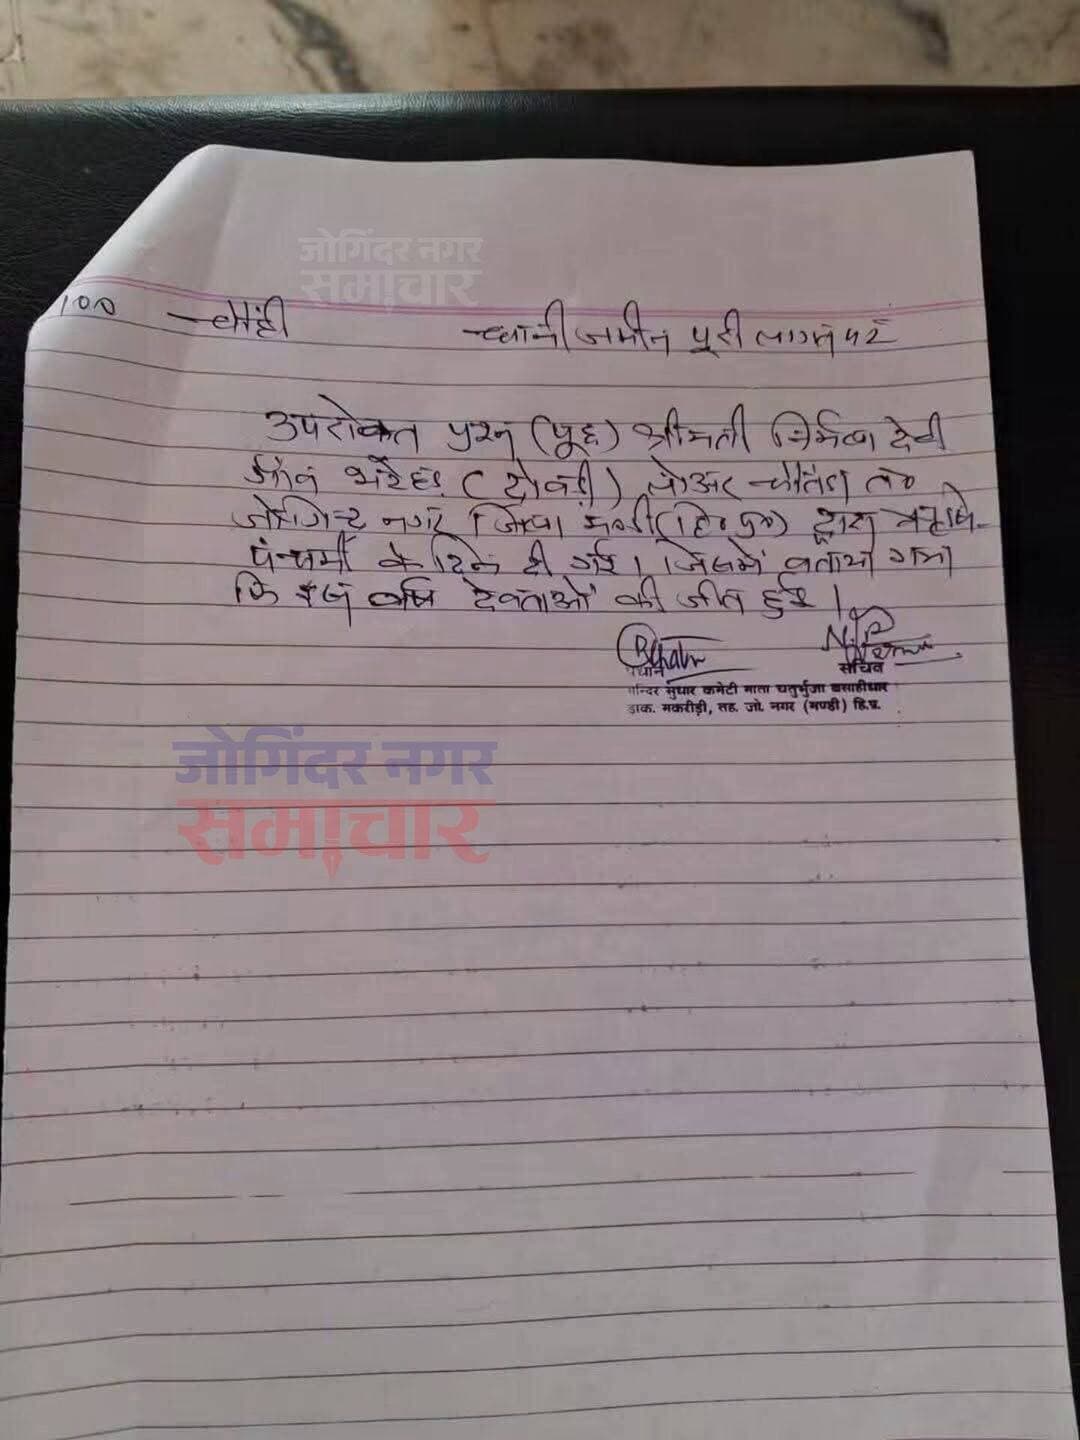 जोगिंदर नगर
समाचार
100 चांदी धानी जमीन पूरी लागत पर
उपरोक्त प्रश्न (पूछ) श्रीमती निर्मला देवी
गांव (टोबड़ी) लोअर चौंतड़ा तह०
जोगिन्दर नगर जिला मण्डी (हि० प्र०) द्वारा ऋषि-
पंचमी के दिन दी गई। जिसमें बताया गया
कि इस वर्ष देवताओं की जीत हुई।
प्रधान सचिव
मन्दिर सुधार कमेटी माता चतुर्भुजा बसाहीधार
डाक. मकरीड़ी, तह. जो. नगर (मण्डी) हि.प्र.
जोगिंदर नगर
समाचार